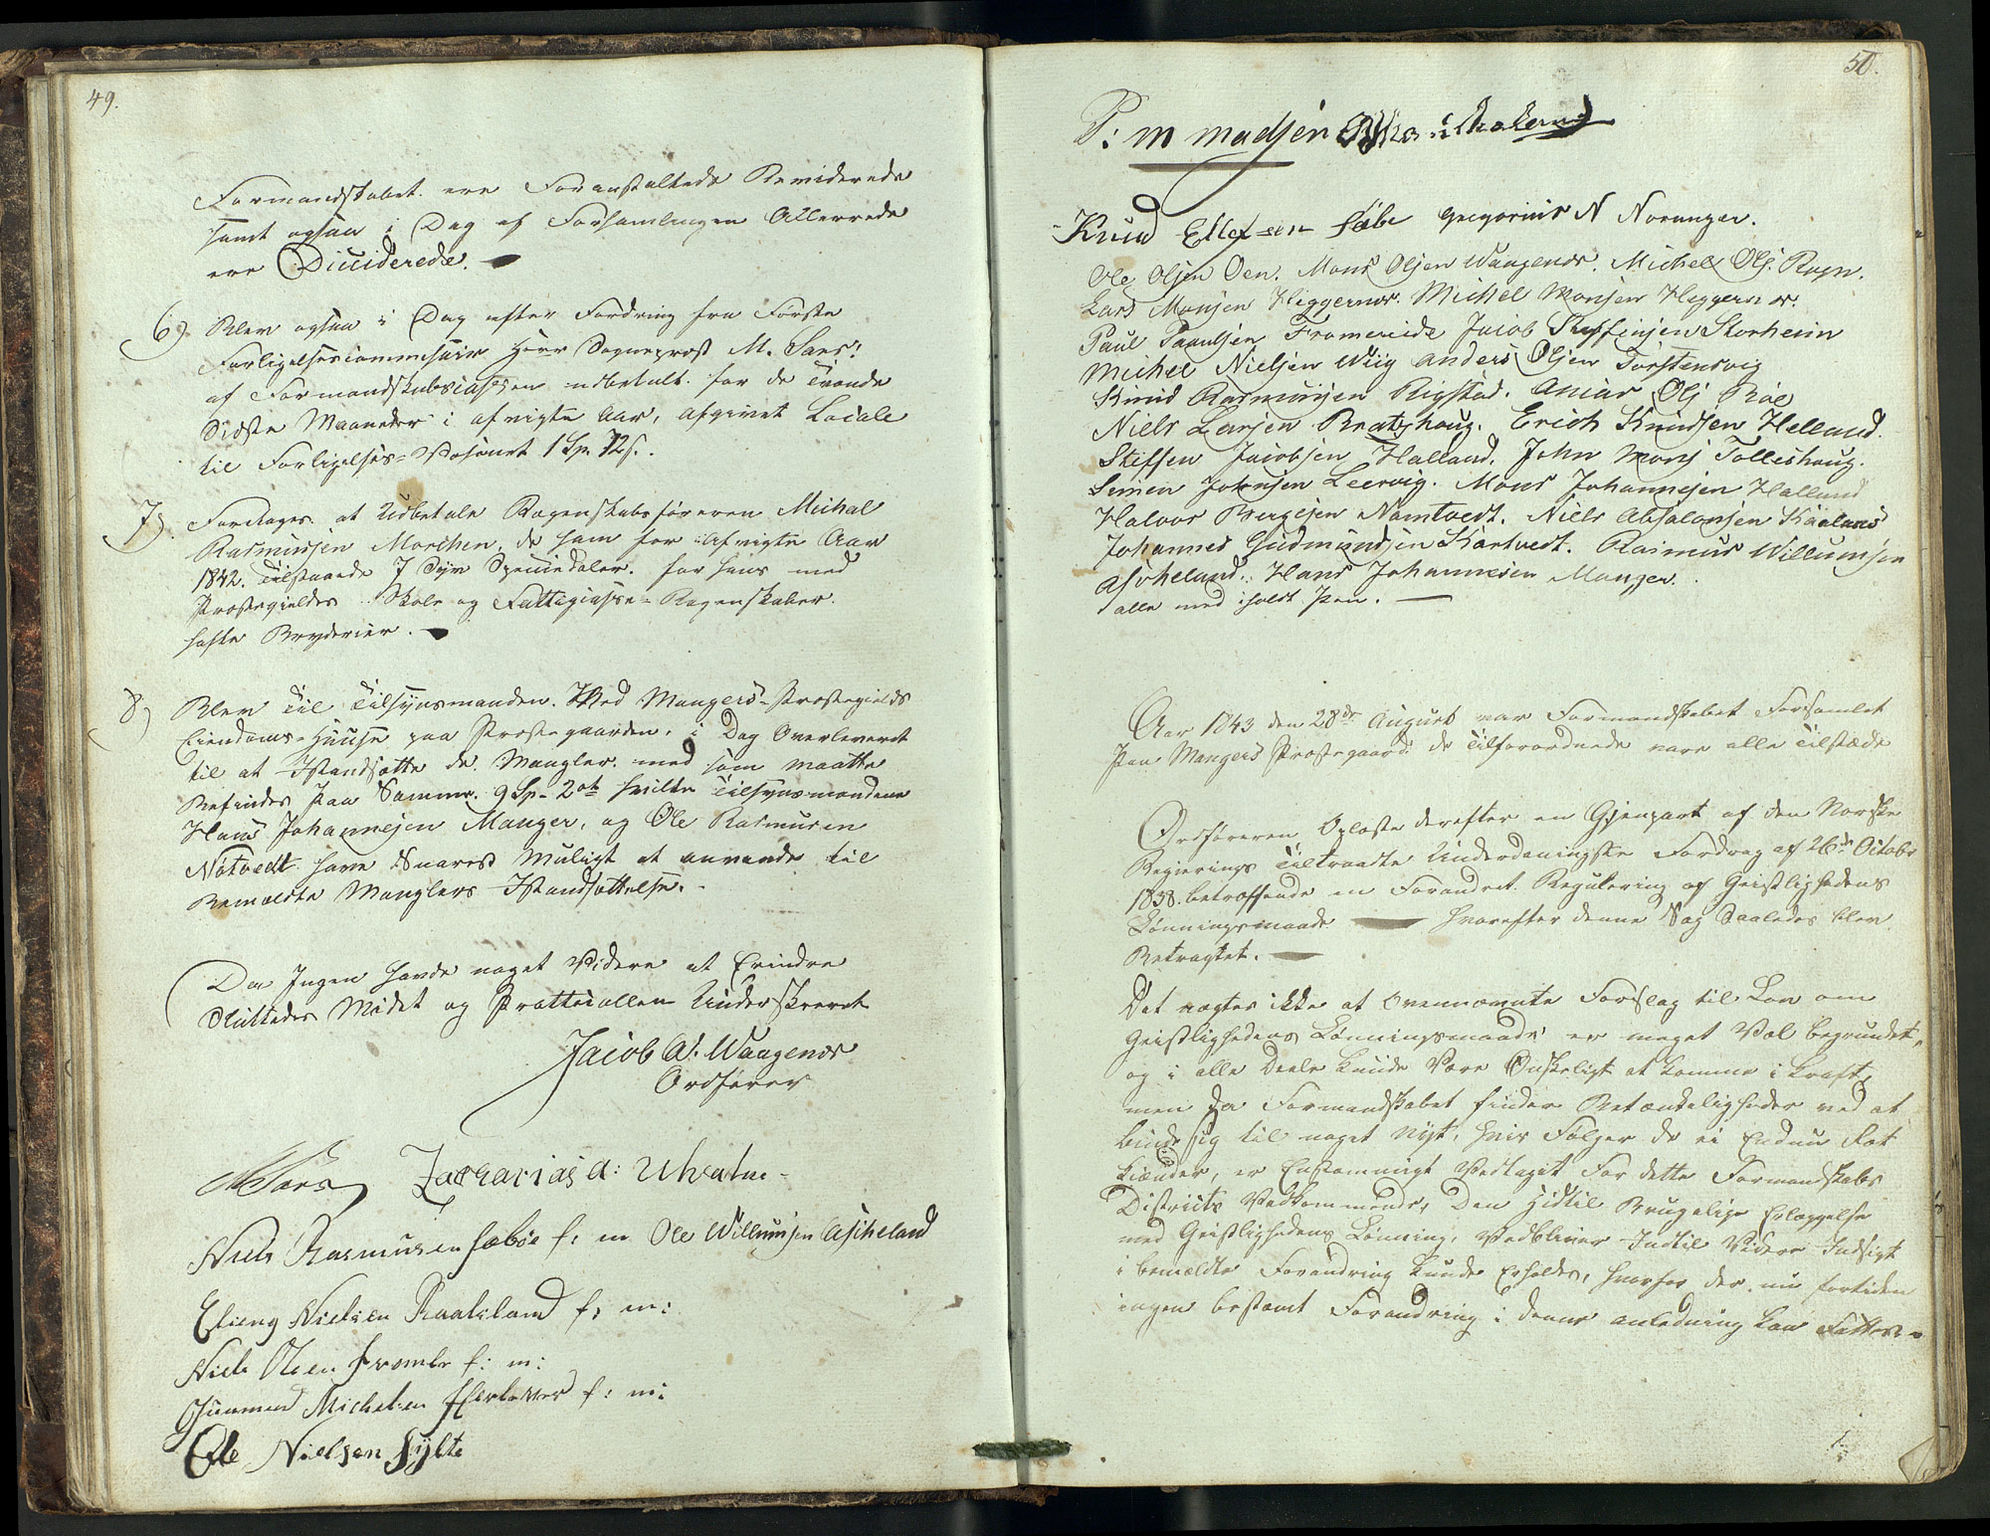 49.
Formandskabet ere Foranstaltede Reviderede
samt ogsaa i Dag af Forsamlingen Allerrede
ere Diciderede. -
6) Blev ogsaa i Dag efter Fordring fra Første
Forligelsescommissair Herr Sogneprost M. Sars.
af Formandskabscassen udbetalt for de Trende
Sidste Maaneder i afvigte Aar, afgivet Locale
til Forligelses-Væsenet 1 Sp. 12 s.
7) Foretages at Udbetale Regenskabsføreren Michal
Rasmussen Morchen, de ham for Afvigte Aar
1842. Tilstaaede 7 Syv Speciedaler. for hans med
Præstegieldes Skole og Fattigcasse-Regenskaber.
hafte Bryderier. -
8) Blev Til Tilsynsmanden. Ved Mangers-Præstegields
Eiendoms-Huuse paa Præstegaarden, i Dag Overleveret
til at Istandsætte de Mangler med som maatte
Befindes Paa Samme. 9 Sp- 2 ort hvilke Tilsynsmændene
Hans Johannesen Manger, og Ole Rasmusen
Natvedt have Snarest Muligt at anvende til
Bemældte Manglers Istandsættelse. -
Da Ingen havde noget Videre at Erindre
Sluttedes Mødet og Prottocollen Underskrevet
Jacob A. Waagenes
Ordfører
M Sars Zacharias A:
Niels Rasmusen Sæbøe f: m Ole Willumsen Ascheland
Elieng Nielsen Raaksland f: m:
Niels Olsen f: m:
Gunmund Michelsen f: m:
Ole Nielsen Hylte
50.
P: m madsen
Knud Ellefsen Sæbe Gregorius N Noranger.
Ole Olsen Oen. Mons Olsen Waagenes. Michel Ols.
Lars Monsen Heggernes. Michel Monsen Heggernes.
Paul Paulsen Fromereide Jacob Steffensen Storheim
Michel Nielsen Wiig Anders Olsen Torstensvig
Knud Rasmussen Rigstad. Ols
Niels Larsen Bratshoug. Erich Knudsen Helland.
Steffen Jacobsen Halland. John Mons Tolleshoug.
Simen Johnsen Leervig. Mons Johannesen Halland
Halvor Børgesen Namtvedt. Niels Absalonsen Kaaland
Johannes Gudmundsen Kartvedt. Rasmus Willumsen
Ascheland. Hans Johannesen Manger.
alle med iholdt Pen. -
Aar 1843 den 28de August var Formandskabet Forsamlet
Paa Mangers Præstegaard de Tilforordnede vare alle Tilstæde
Ordføreren Oplæste derefter en Gjenpart af den Norske
Regierings Tiltraadte Underdanigste Fordrag af 26de Octobr
1838. betræffende en Forandret Regulering af Geistlighedens
Lønningsmaade - hvorefter denne Sag Saaledes blev
Betragtet. -
Det nægtes ikke at Ovennævnte Forslag til Lov om
Geistlighedens Lønningsmaade er meget Vel begrundet,
og i alle Deele kunde Være Ønskeligt at komme i Kraft,
men da Formandskabet finder Betænkeligheder ved at
binde sig til noget Nyt, hvis Følger de ei Endnu Ret
kiender, er Enstemmigt Vedtaget For dette Formandskabs
Districts Vedkommende, Den Hidtil Brugelige Erlæggelse
med Geistlighedens Lønning, Vedbliver Indtil Videre Indsigt
i bemældte Forandring kunde Erholdes, hvorfor der nu fortiden
ingen bestemt Forandring i denne anledning kan Fattes -